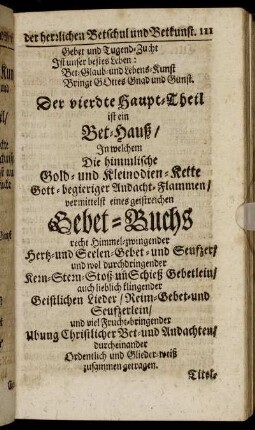 der herzlichen Betschul und Betkunst. 111
Gebet und Tugend-Zucht
Ist unser bestes Leben:
Bet-Glaub-und Lebens-Kunst
Bringt GOttes Gnad und Gunst.
Der vierdte Haupt-Theil
ist ein
Bet-Hauß/
In welchem
Die himmlische
Gold- und Kleinodien-Kette
Gott-begieriger Andacht-Flammen/
vermittelst eines geistreichen
Gebet-Buchs
recht Himmel-zwingender
Hertz-und Seelen-Gebet-und Seufzer/
und wol durchdringender
Kern-Stern-Stoß un Schieß Gebetlein/
auch lieblich klingender
Geistlichen Lieder/ Reim-Gebet-und
Seufzerlein/
und viel Frucht-bringender
Ubung Christlicher Bet-und Andachten/
durcheinander
Ordentlich und Glieder-weiß
zusammen getragen.
Titel-